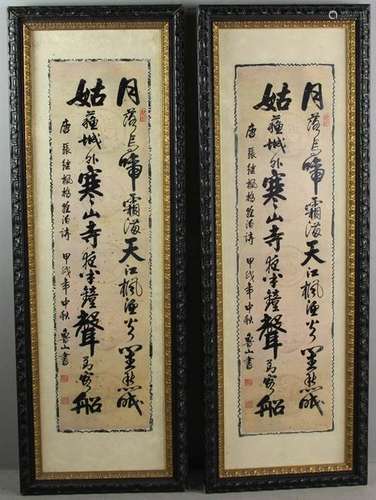 月落烏啼霜滿天江楓漁火對愁眠
姑蘇城外寒山寺夜半鐘聲到客船
唐張继楓橋夜泊詩 甲戌年中秋 魯山書
月落烏啼霜滿天江楓漁火對愁眠
姑蘇城外寒山寺夜半鐘聲到客船
唐張继楓橋夜泊詩 甲戌年中秋 魯山書